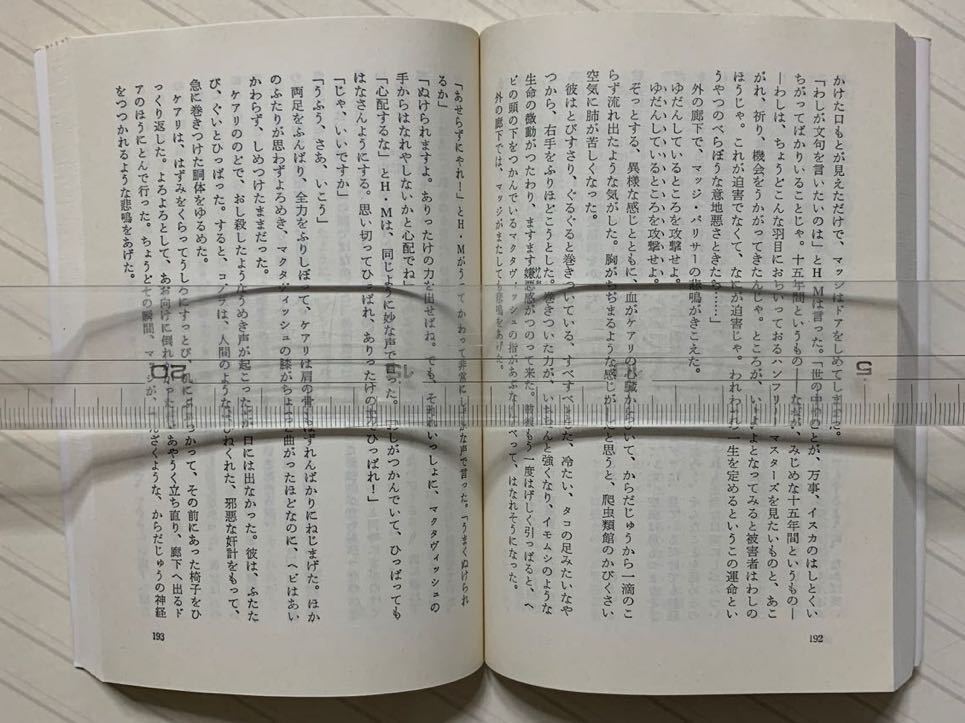 かけた口もとが見えただけで、マッジはドアをしめてしまった。
「わしが文句を言いたいのは」とH・Mは言った。「世の中のことが、万事、イスカのはしとくい
ちがってばかりいることじゃ。十五年間というもの――なんが、みじめな十五年間というもの――
――わしは、ちょうどこんな羽目におちいっておるハンフリー・マスターズを見たいものと、あこ
がれ、祈り、機会をうかがってきたんじゃ。ところが、いよいよとなってみると被害者はわしの
ほうじゃ。これが迫害でなくて、なにが迫害じゃ。われわれの一生を定めるというこの運命とい
うやつのべらぼうな意地悪さときたら……」
外の廊下で、マッジ・パリサーの悲鳴がきこえた。
ゆだんしているところを攻撃せよ。
ゆだんしているところを攻撃せよ。
ぞっとする、異様な感じとともに、血がケアリの心臓から
らず流れ出たような気がした。胸がちぢまるような感じが
空気に肺が苦しくなった。
彼はとびすさり、ぐるぐると巻きついている、すべすべ
つから、右手をふりほどこうとした。巻きついた力が、いちだんと強くなり、イモムシのような
生命の微動がつたわり、ますます嫌悪感がつのって来た。
ビの頭の下をつかんでいるマクタヴィッシュの指があぶな
外の廊下では、マッジがまたしても悲鳴をあげた。
192
「あせらずにやれ!」とH・Mがうってかわって非常に
るか」
「ぬけられますよ。ありったけの力を出せばね。でも、それといっしょに、マクタヴィッシュの
手からはなれやしないかと心配でね」
「心配するな」とH・Mは、同じように妙な声で言った。「わしがつかんでいて、ひっぱっても
はなさんようにする。思い切ってひっぱれ、ありったけの力でひっぱれ!」
「じゃ、いいですか」
「うふう、さあ、いこう」
両足をふんばり、全力をふりしぼって、ケアリは肩の骨がはずれんばかりにねじまげた。ほか
のふたりが思わずよろめき、マクタヴィッシュの膝がちょっと曲がったほどなのに、ヘビはあい
かわらず、しめつけたままだった。
ケアリののどで、おし殺したようなうめき声が起こったが、口には出なかった。彼は、ふたた
び、ぐいとひっぱった。すると、コブラは、人間のような、ひねくれた、邪悪な奸計をもって、
急に巻きつけた胴体をゆるめた。
ケアリは、はずみをくらってうしろにすっとび、机にぶつかって、その前にあった椅子をひ
っくり返した。よろよろとして、あお向けに倒れかかったが、あやうく立ち直り、廊下へ出るド
アのほうにとんで行った。ちょうどその瞬間、マッジが、つんざくような、からだじゅうの神経
をつつかれるような悲鳴をあげた。
193
20
15
5